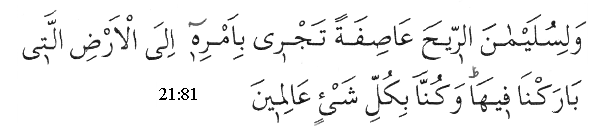 وَلِسُلَيْمٰنَ الرِّيحَ عَاصِفَةً تَجْرٖى بِاَمْرِهٖٓ اِلَى الْاَرْضِ الَّتٖى
بَارَكْنَا فٖيهَاؕ وَكُنَّا بِكُلِّ شَیْءٍ عَالِمٖينَ 21:81